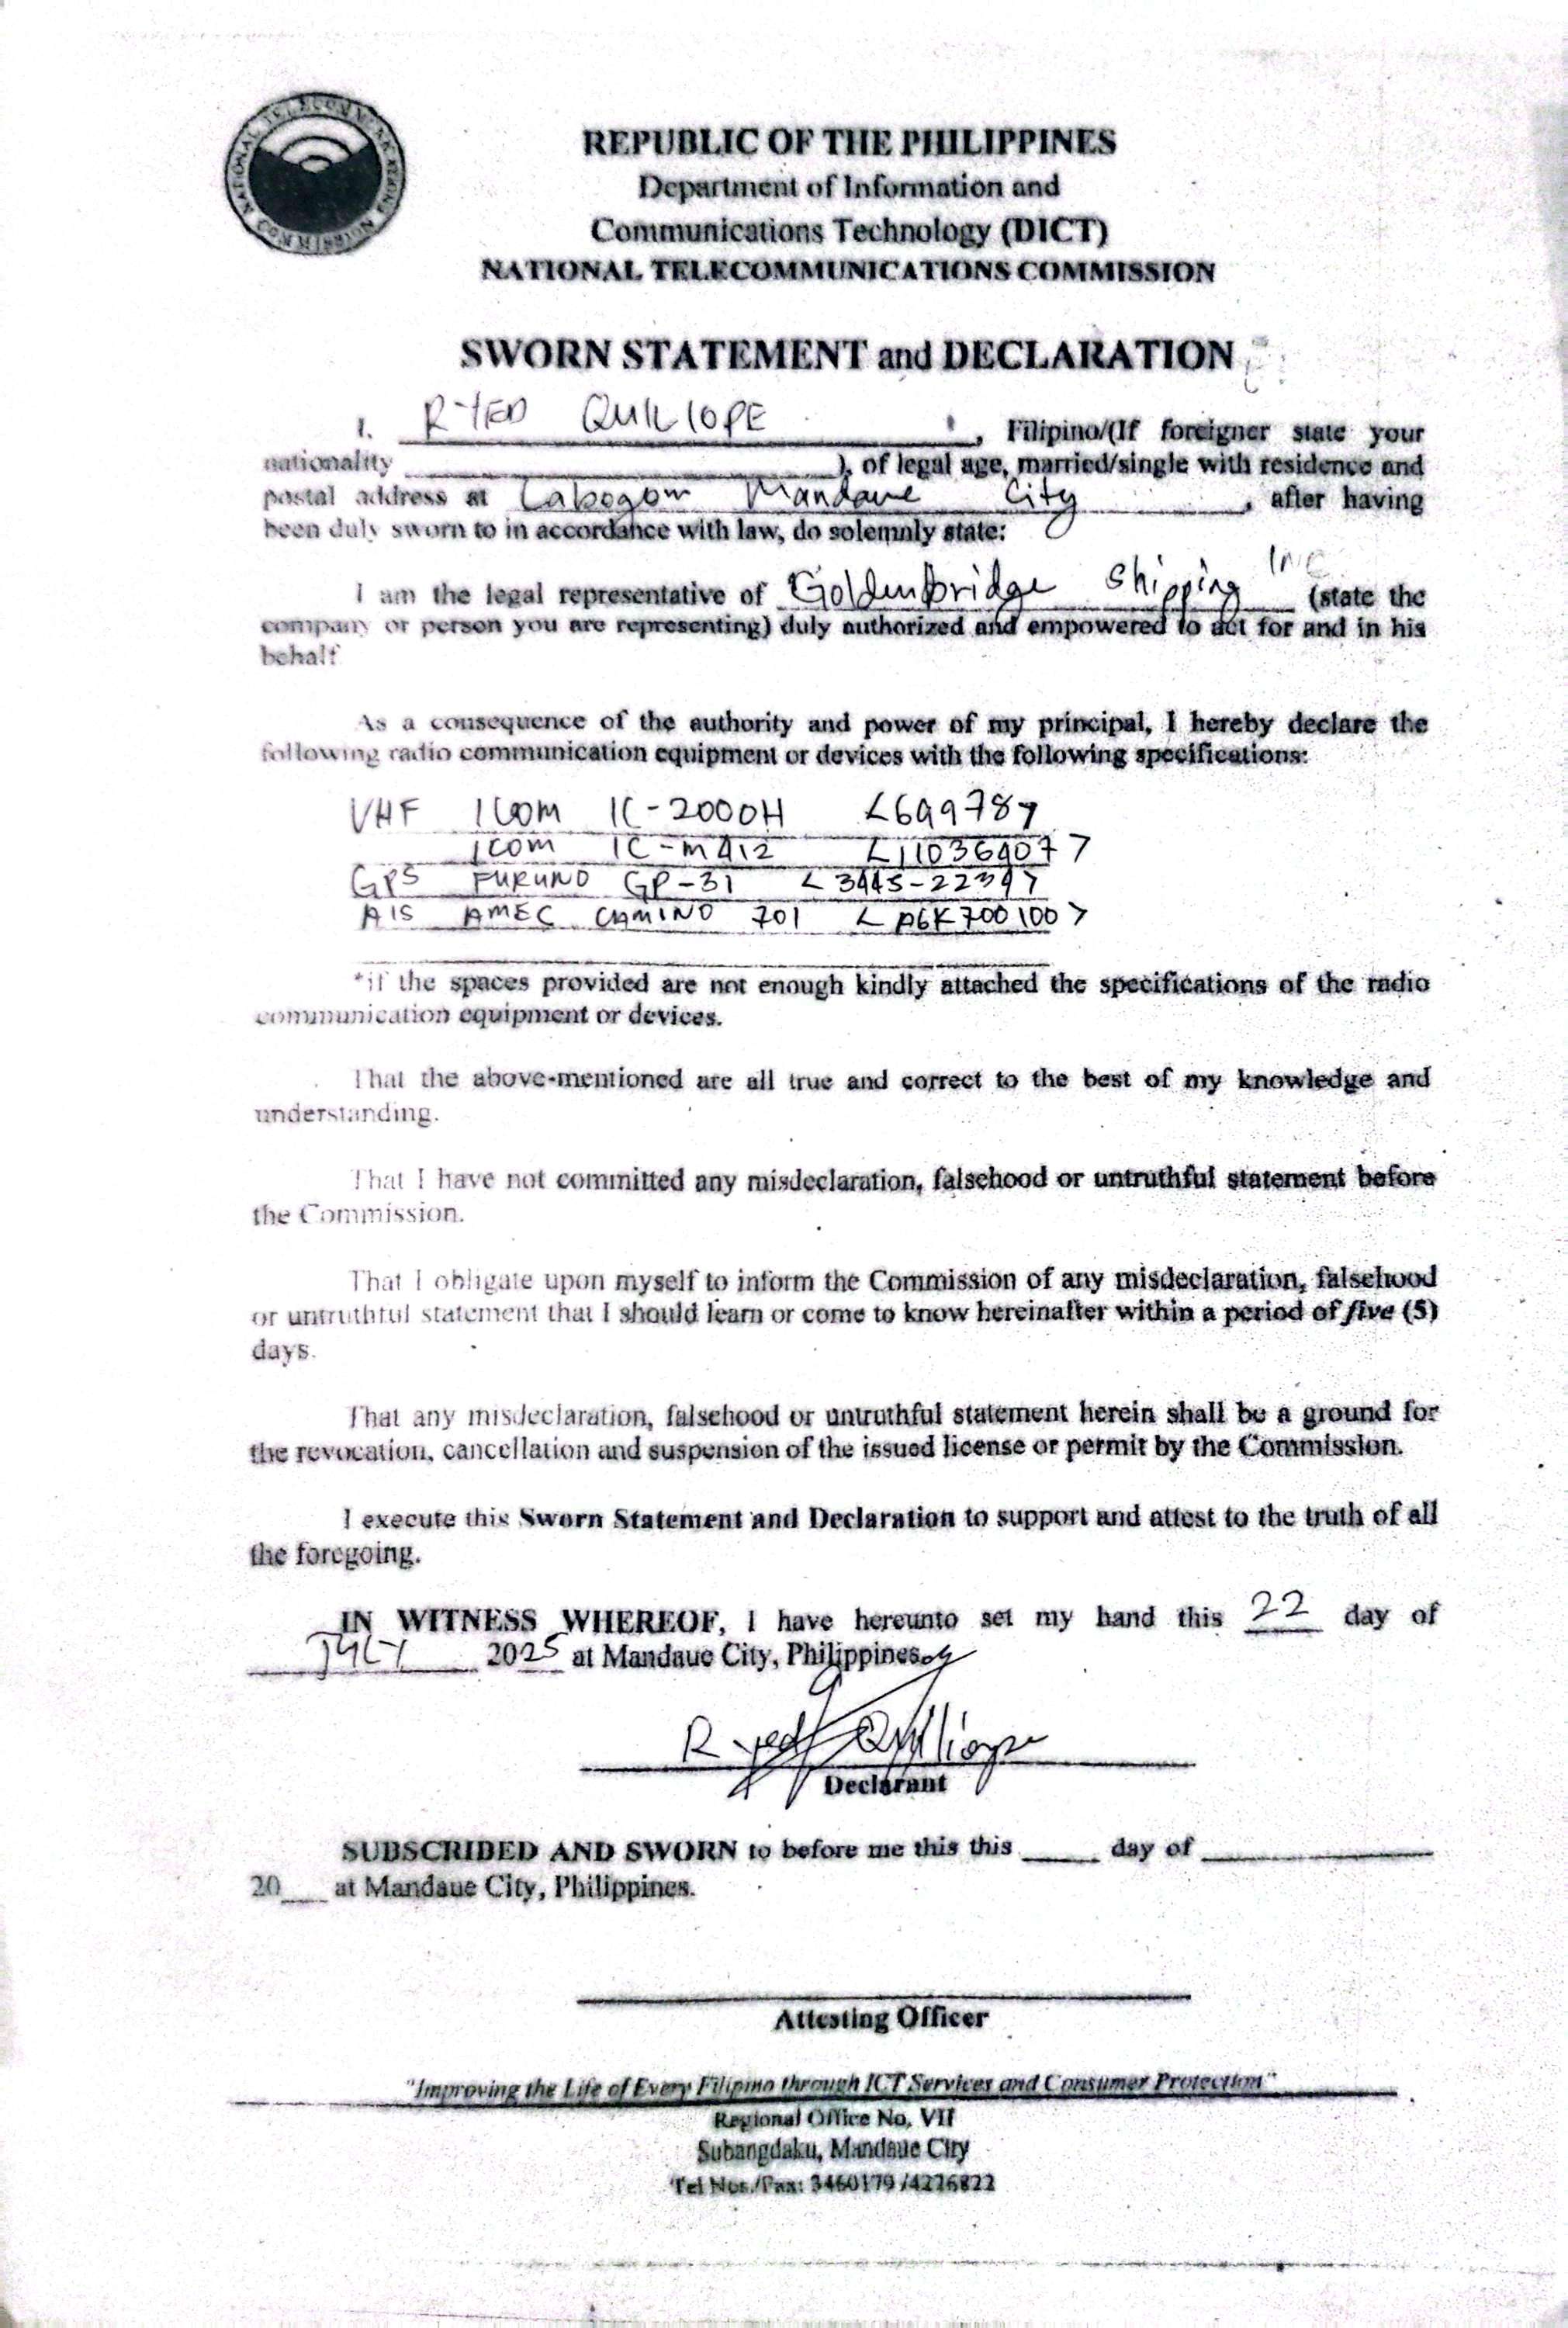 NATIONAL TELECOMMUNICATIONS COMMISSION
REPUBLIC OF THE PHILIPPINES
Department of Information and
Communications Technology (DICT)
NATIONAL TELECOMMUNICATIONS COMMISSION
SWORN STATEMENT and DECLARATION
I. RYED QUILIOPE, Filipino/(If foreigner state your
nationality ____), of legal age, married/single with residence and
postal address at Labogon Mandaue City, after having
been duly sworn to in accordance with law, do solemnly state:
I am the legal representative of Goldenbridge Shipping Inc (state the
company or person you are representing) duly authorized and empowered to act for and in his
behalf
As a consequence of the authority and power of my principal, I hereby declare the
following radio communication equipment or devices with the following specifications:
VHF ICOM IC-2000H <699787
ICOM IC-M412 <11036907>
GPS FURUNO GP-31 <3445-2239>
AIS AMEC CAMINO 701 <A6K700100>
*if the spaces provided are not enough kindly attached the specifications of the radio
communication equipment or devices.
That the above-mentioned are all true and correct to the best of my knowledge and
understanding.
That I have not committed any misdeclaration, falsehood or untruthful statement before
the Commission.
That I obligate upon myself to inform the Commission of any misdeclaration, falsehood
or untruthful statement that I should learn or come to know hereinafter within a period of five (5)
days.
That any misdeclaration, falsehood or untruthful statement herein shall be a ground for
the revocation, cancellation and suspension of the issued license or permit by the Commission.
I execute this Sworn Statement and Declaration to support and attest to the truth of all
the foregoing.
IN WITNESS WHEREOF, I have hereunto set my hand this 22 day of
JULY 2025 at Mandaue City, Philippines.
Ryed Quiliope
Declarant
SUBSCRIBED AND SWORN to before me this this ____ day of ____
20__ at Mandaue City, Philippines.
Attesting Officer
"Improving the Life of Every Filipino through ICT Services and Consumer Protection"
Regional Office No. VII
Subangdaku, Mandaue City
Tel Nos./Fax: 3460179 /4226822